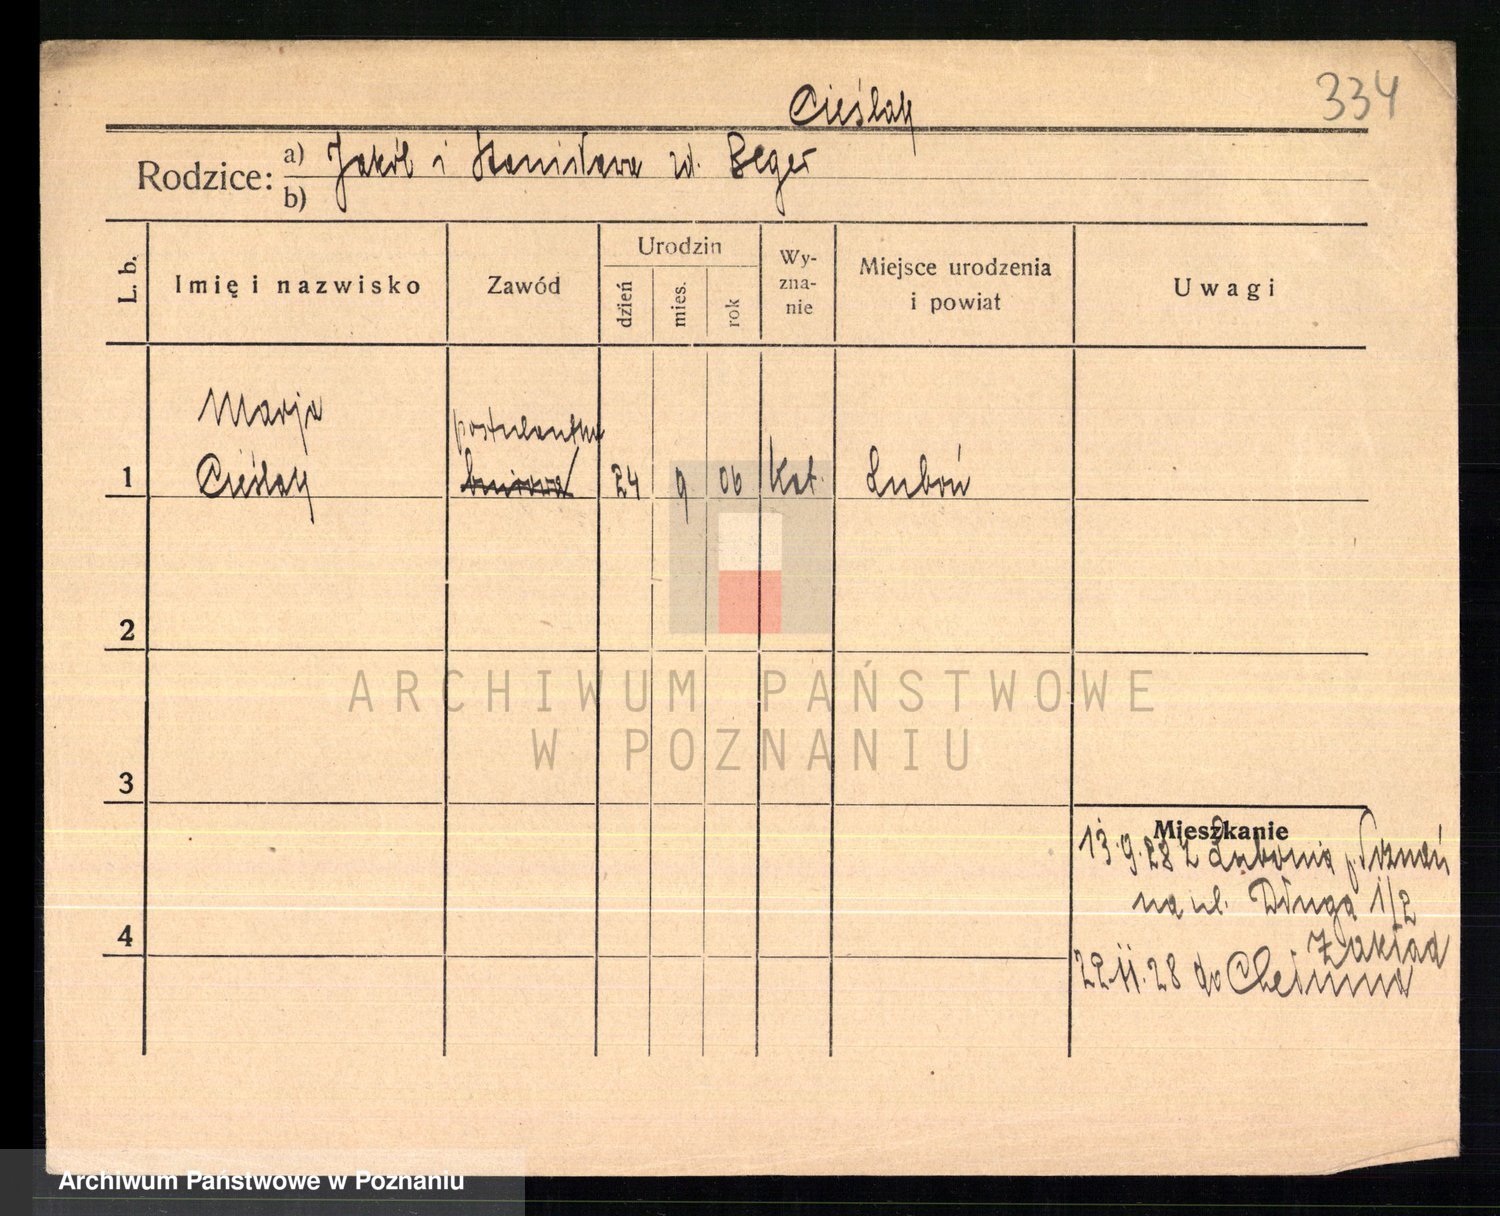 334
Cieślak
Rodzice: a) Jakób i Stanisława zd. Beger
b)
L. b. Imię i nazwisko Zawód Urodzin dzień mies. rok Wyznanie Miejsce urodzenia i powiat Uwagi
Marja postulantka
1 Cieślak 24 9 06 kat. Luboń
2
ARCHIWUM PAŃSTWOWE
W POZNANIU
3
Mieszkanie
13.9.28 z Lubonia p. Poznań
na ul. Długa 1/2
Zakład
4
22.11.28 do Chełmna
Archiwum Państwowe w Poznaniu